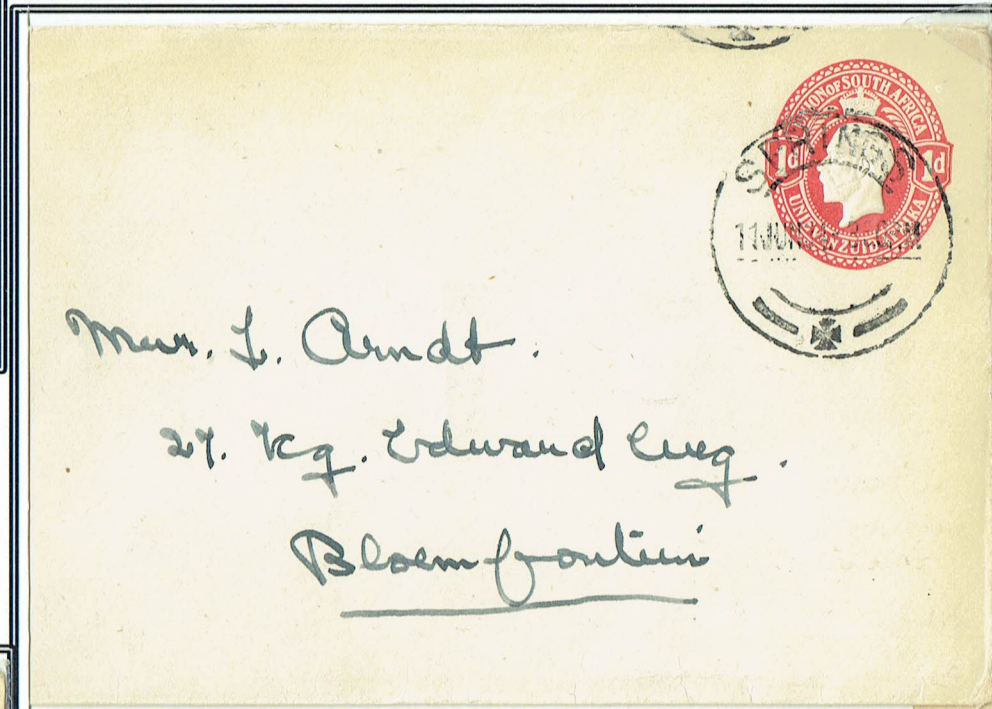 UNION OF SOUTH AFRICA
1d 1d
UNIE VAN ZUID AFRIKA
SPRINGS
11 JUN
Mevr. L. Arndt.
27. Kg. Edward Weg.
Bloemfontein